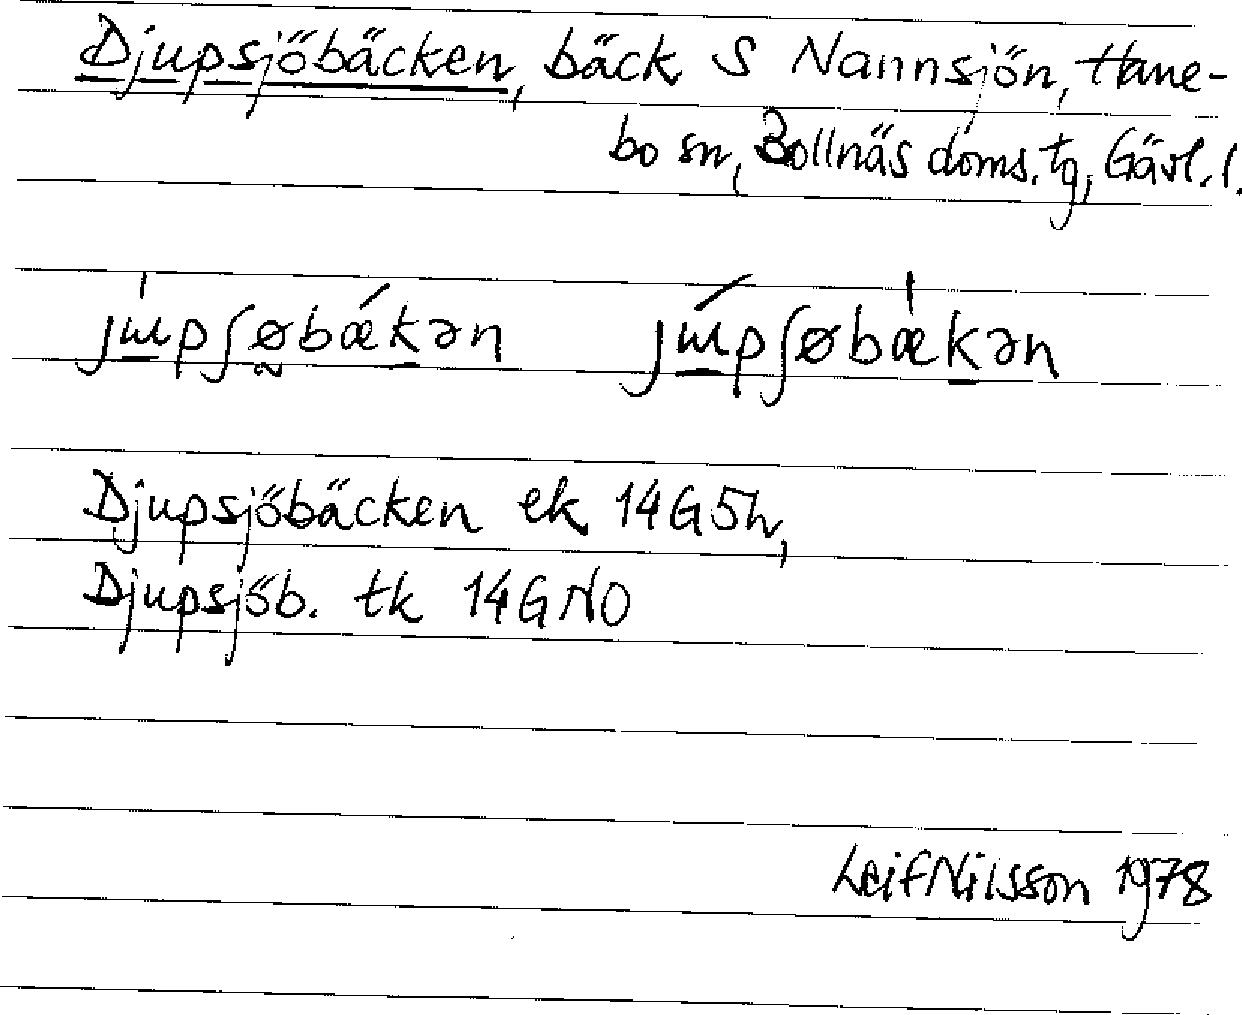 Djupsjöbäcken, bäck S Nannsjön, Hane-
bo sn, Bollnäs doms. tg, Gävl. l.
jɯ́pʃøbǽkən jɯ́pʃøbǽkən
Djupsjöbäcken ek 14G5h,
Djupsjöb. tk 14GNO
Leif Nilsson 1978